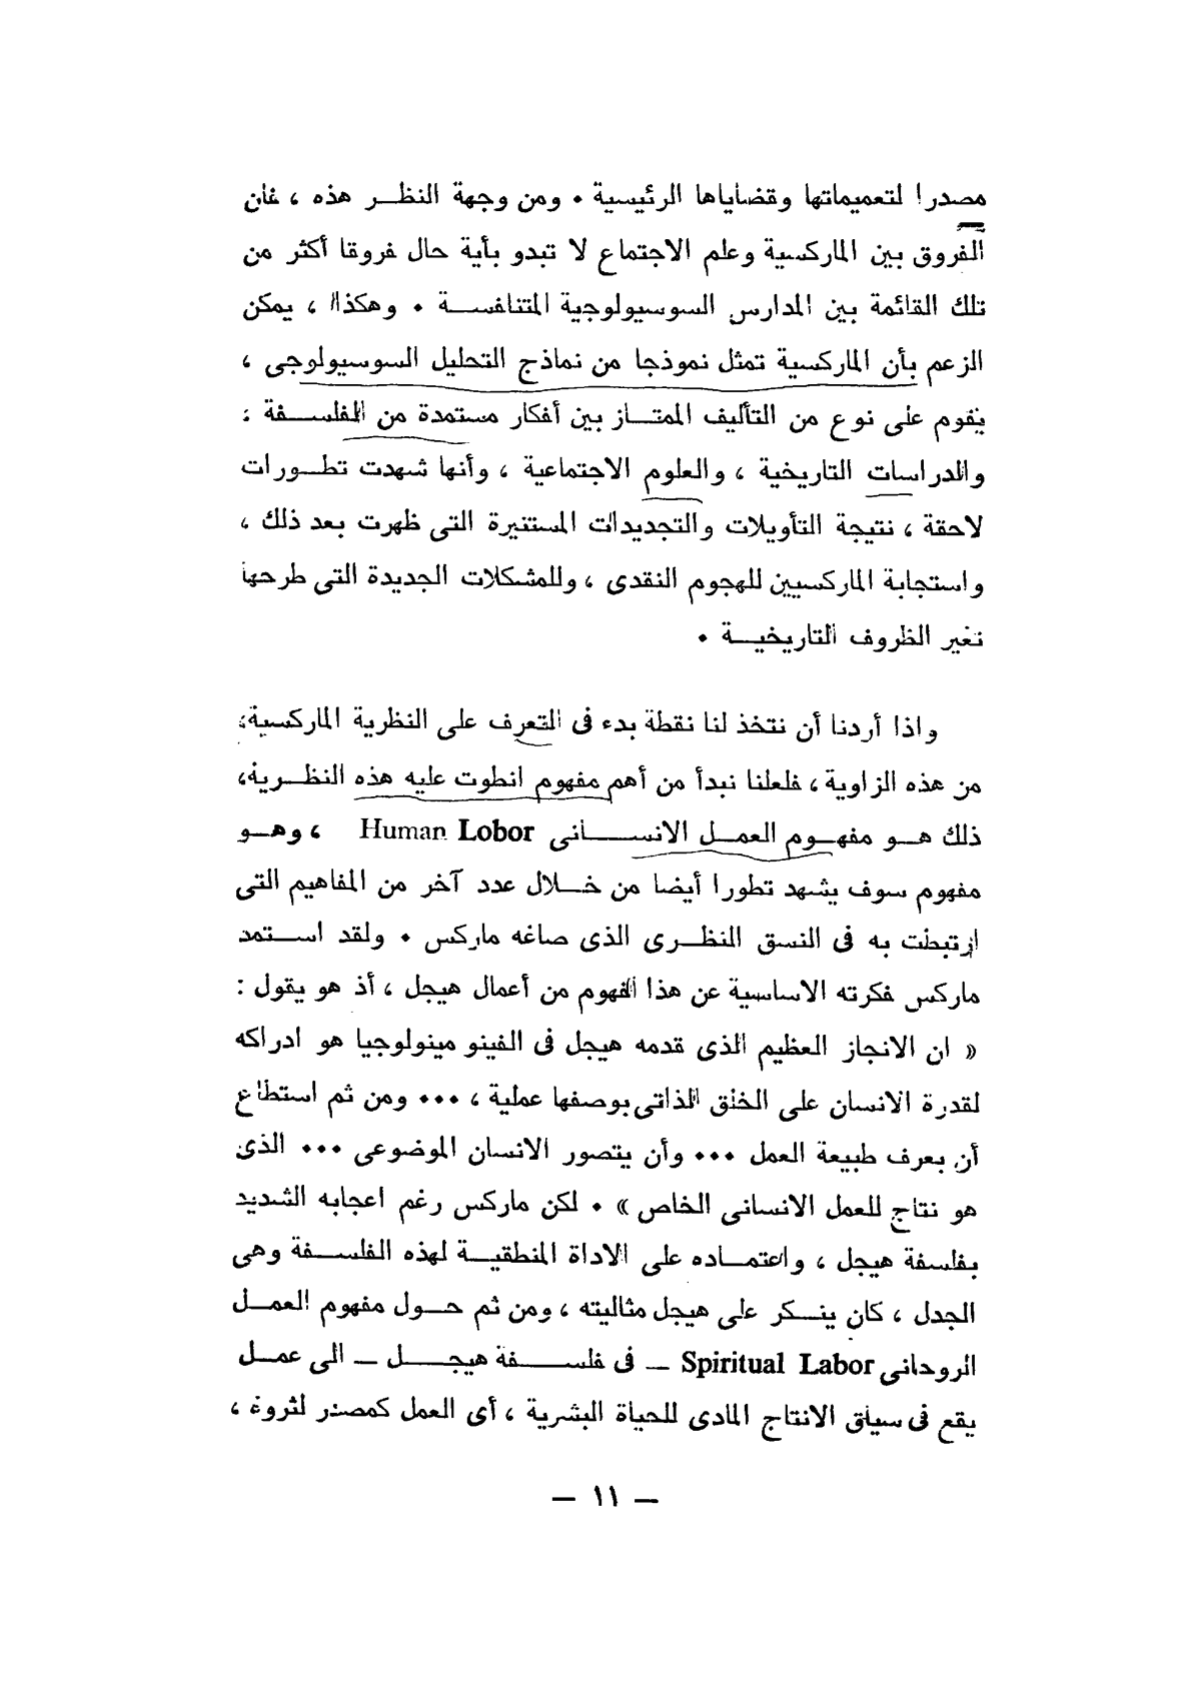 مصدرا لتعميماتها وقضاياها الرئيسية • ومن وجهة النظر هذه ، فان
الفروق بين الماركسية وعلم الاجتماع لا تبدو بأية حال فروقا أكثر من
تلك القائمة بين المدارس السوسيولوجية المتنافسة • وهكذا ، يمكن
الزعم بأن الماركسية تمثل نموذجا من نماذج التحليل السوسيولوجى ،
يقوم على نوع من التأليف الممتاز بين أفكار مستمدة من الفلسفة ،
والدراسات التاريخية ، والعلوم الاجتماعية ، وأنها شهدت تطورات
لاحقة ، نتيجة التأويلات والتجديدات المستنيرة التى ظهرت بعد ذلك ،
واستجابة الماركسيين للهجوم النقدى ، وللمشكلات الجديدة التى طرحها
تغير الظروف التاريخية •
واذا أردنا أن نتخذ لنا نقطة بدء فى التعرف على النظرية الماركسية،
من هذه الزاوية ، فلعلنا نبدأ من أهم مفهوم انطوت عليه هذه النظرية،
ذلك هو مفهوم العمل الانسانى Human Lobor ، وهو
مفهوم سوف يشهد تطورا أيضا من خلال عدد آخر من المفاهيم التى
ارتبطت به فى النسق النظرى الذى صاغه ماركس • ولقد استمد
ماركس فكرته الاساسية عن هذا الفهوم من أعمال هيجل ، أذ هو يقول :
« ان الانجاز العظيم الذى قدمه هيجل فى الفينو مينولوجيا هو ادراكه
لقدرة الانسان على الخلق الذاتى بوصفها عملية ، ••• ومن ثم استطاع
أن يعرف طبيعة العمل ••• وأن يتصور الانسان الموضوعى ••• الذى
هو نتاج للعمل الانسانى الخاص » • لكن ماركس رغم اعجابه الشديد
بفلسفة هيجل ، واعتماده على الاداة المنطقية لهذه الفلسفة وهى
الجدل ، كان ينكر على هيجل مثاليته ، ومن ثم حول مفهوم العمل
الروحانى Spiritual Labor — فى فلسفة هيجل — الى عمل
يقع فى سياق الانتاج المادى للحياة البشرية ، أى العمل كمصدر لثروة ،
— ١١ —